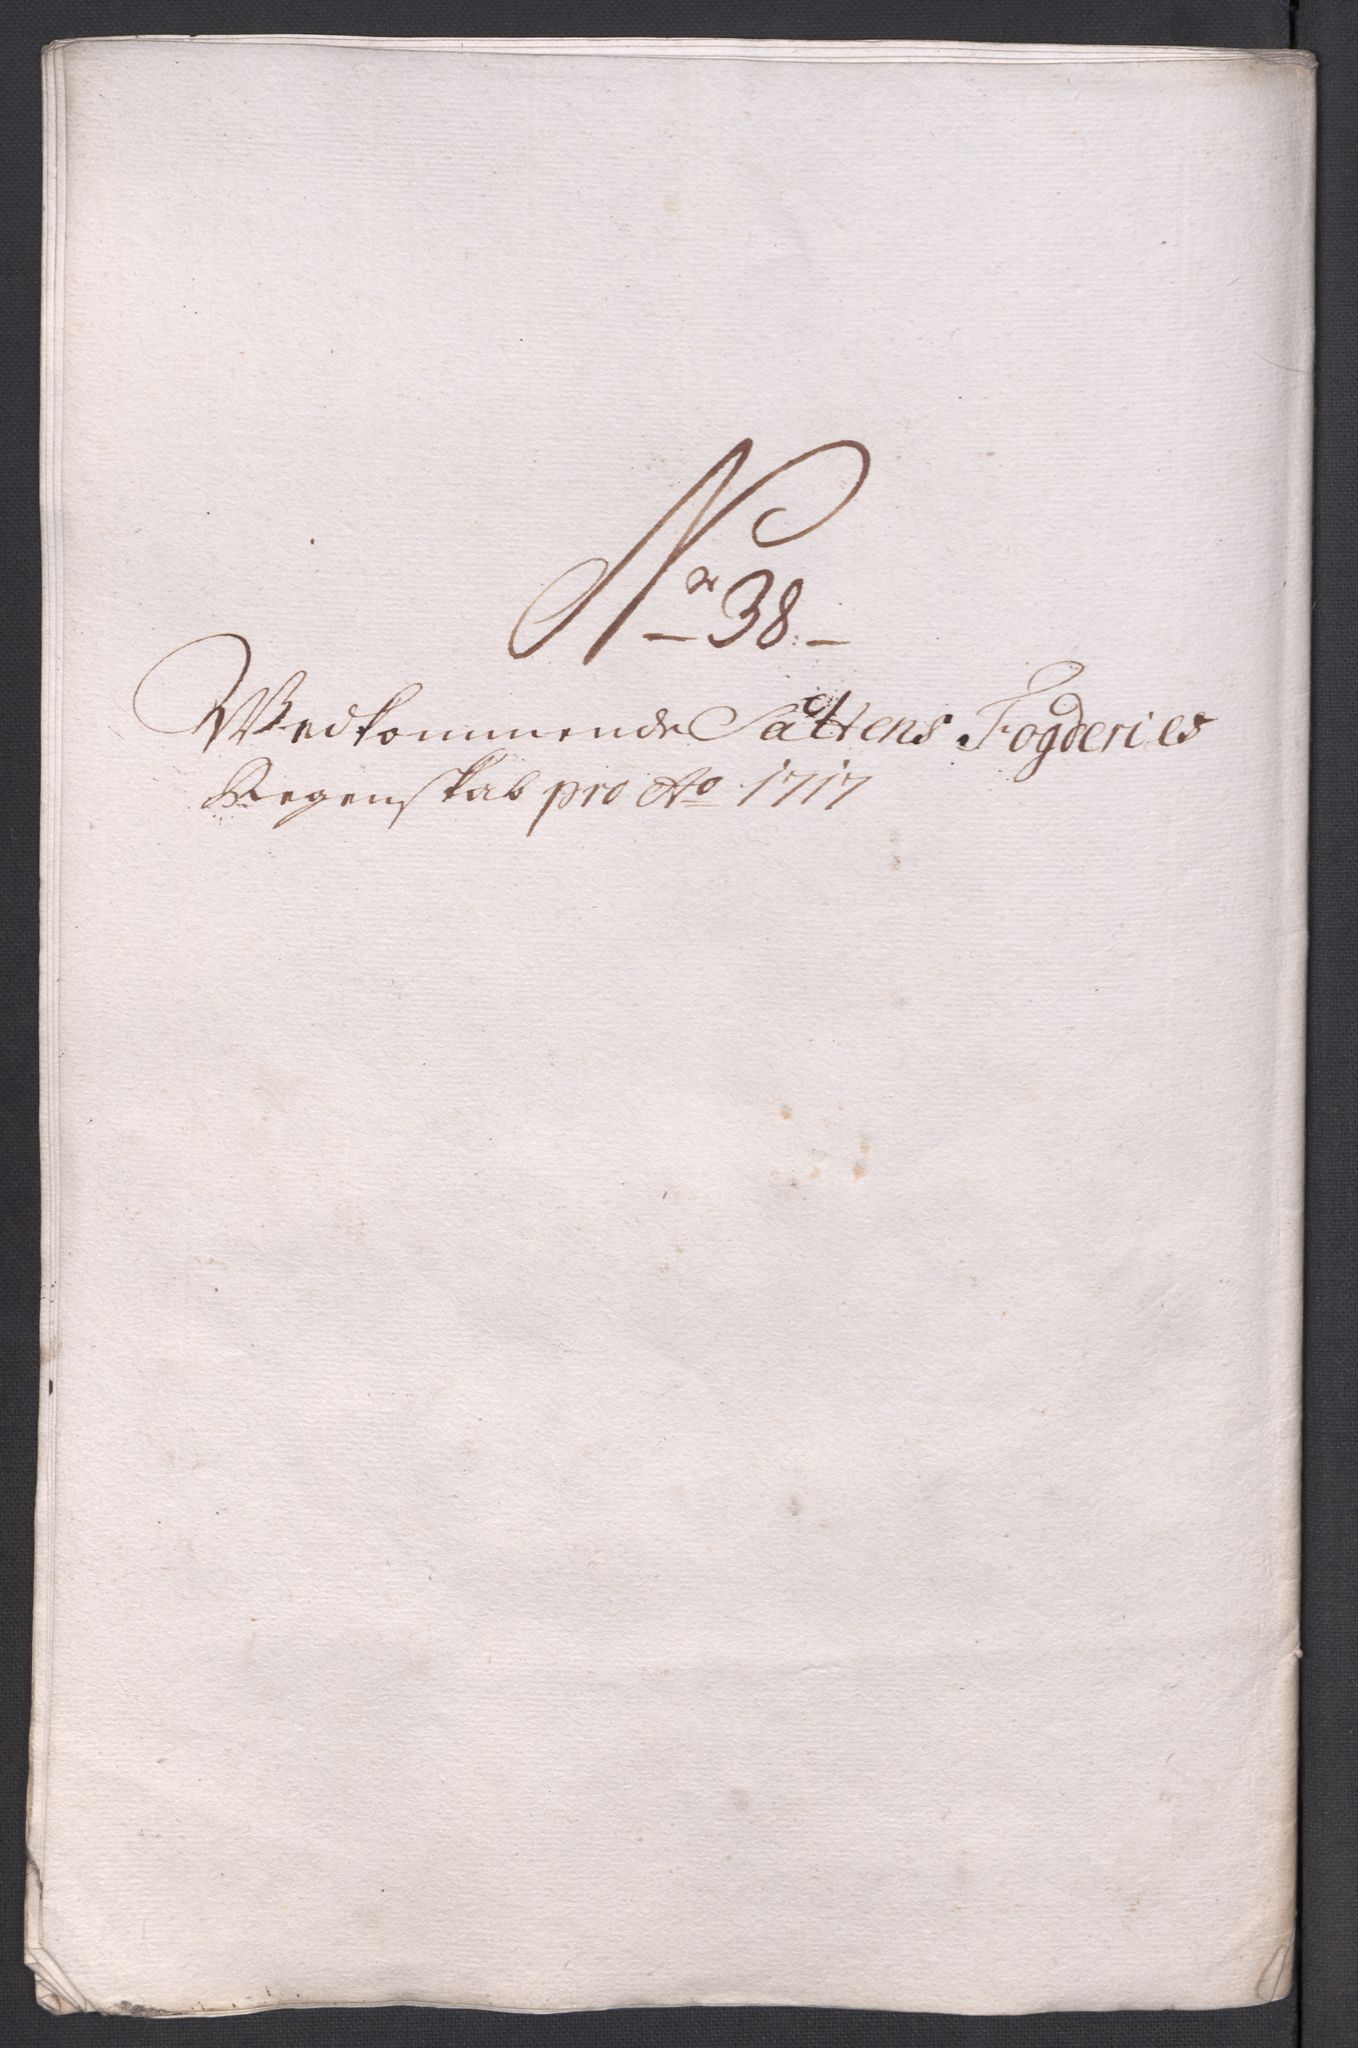 Nr 38
Wedkommende Saltens Fogderies
Regenskab pro Ao 1717